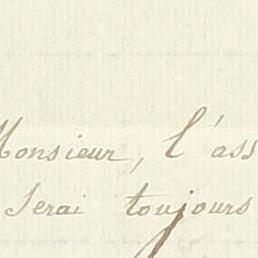 Monsieur, l'ass
serai toujours